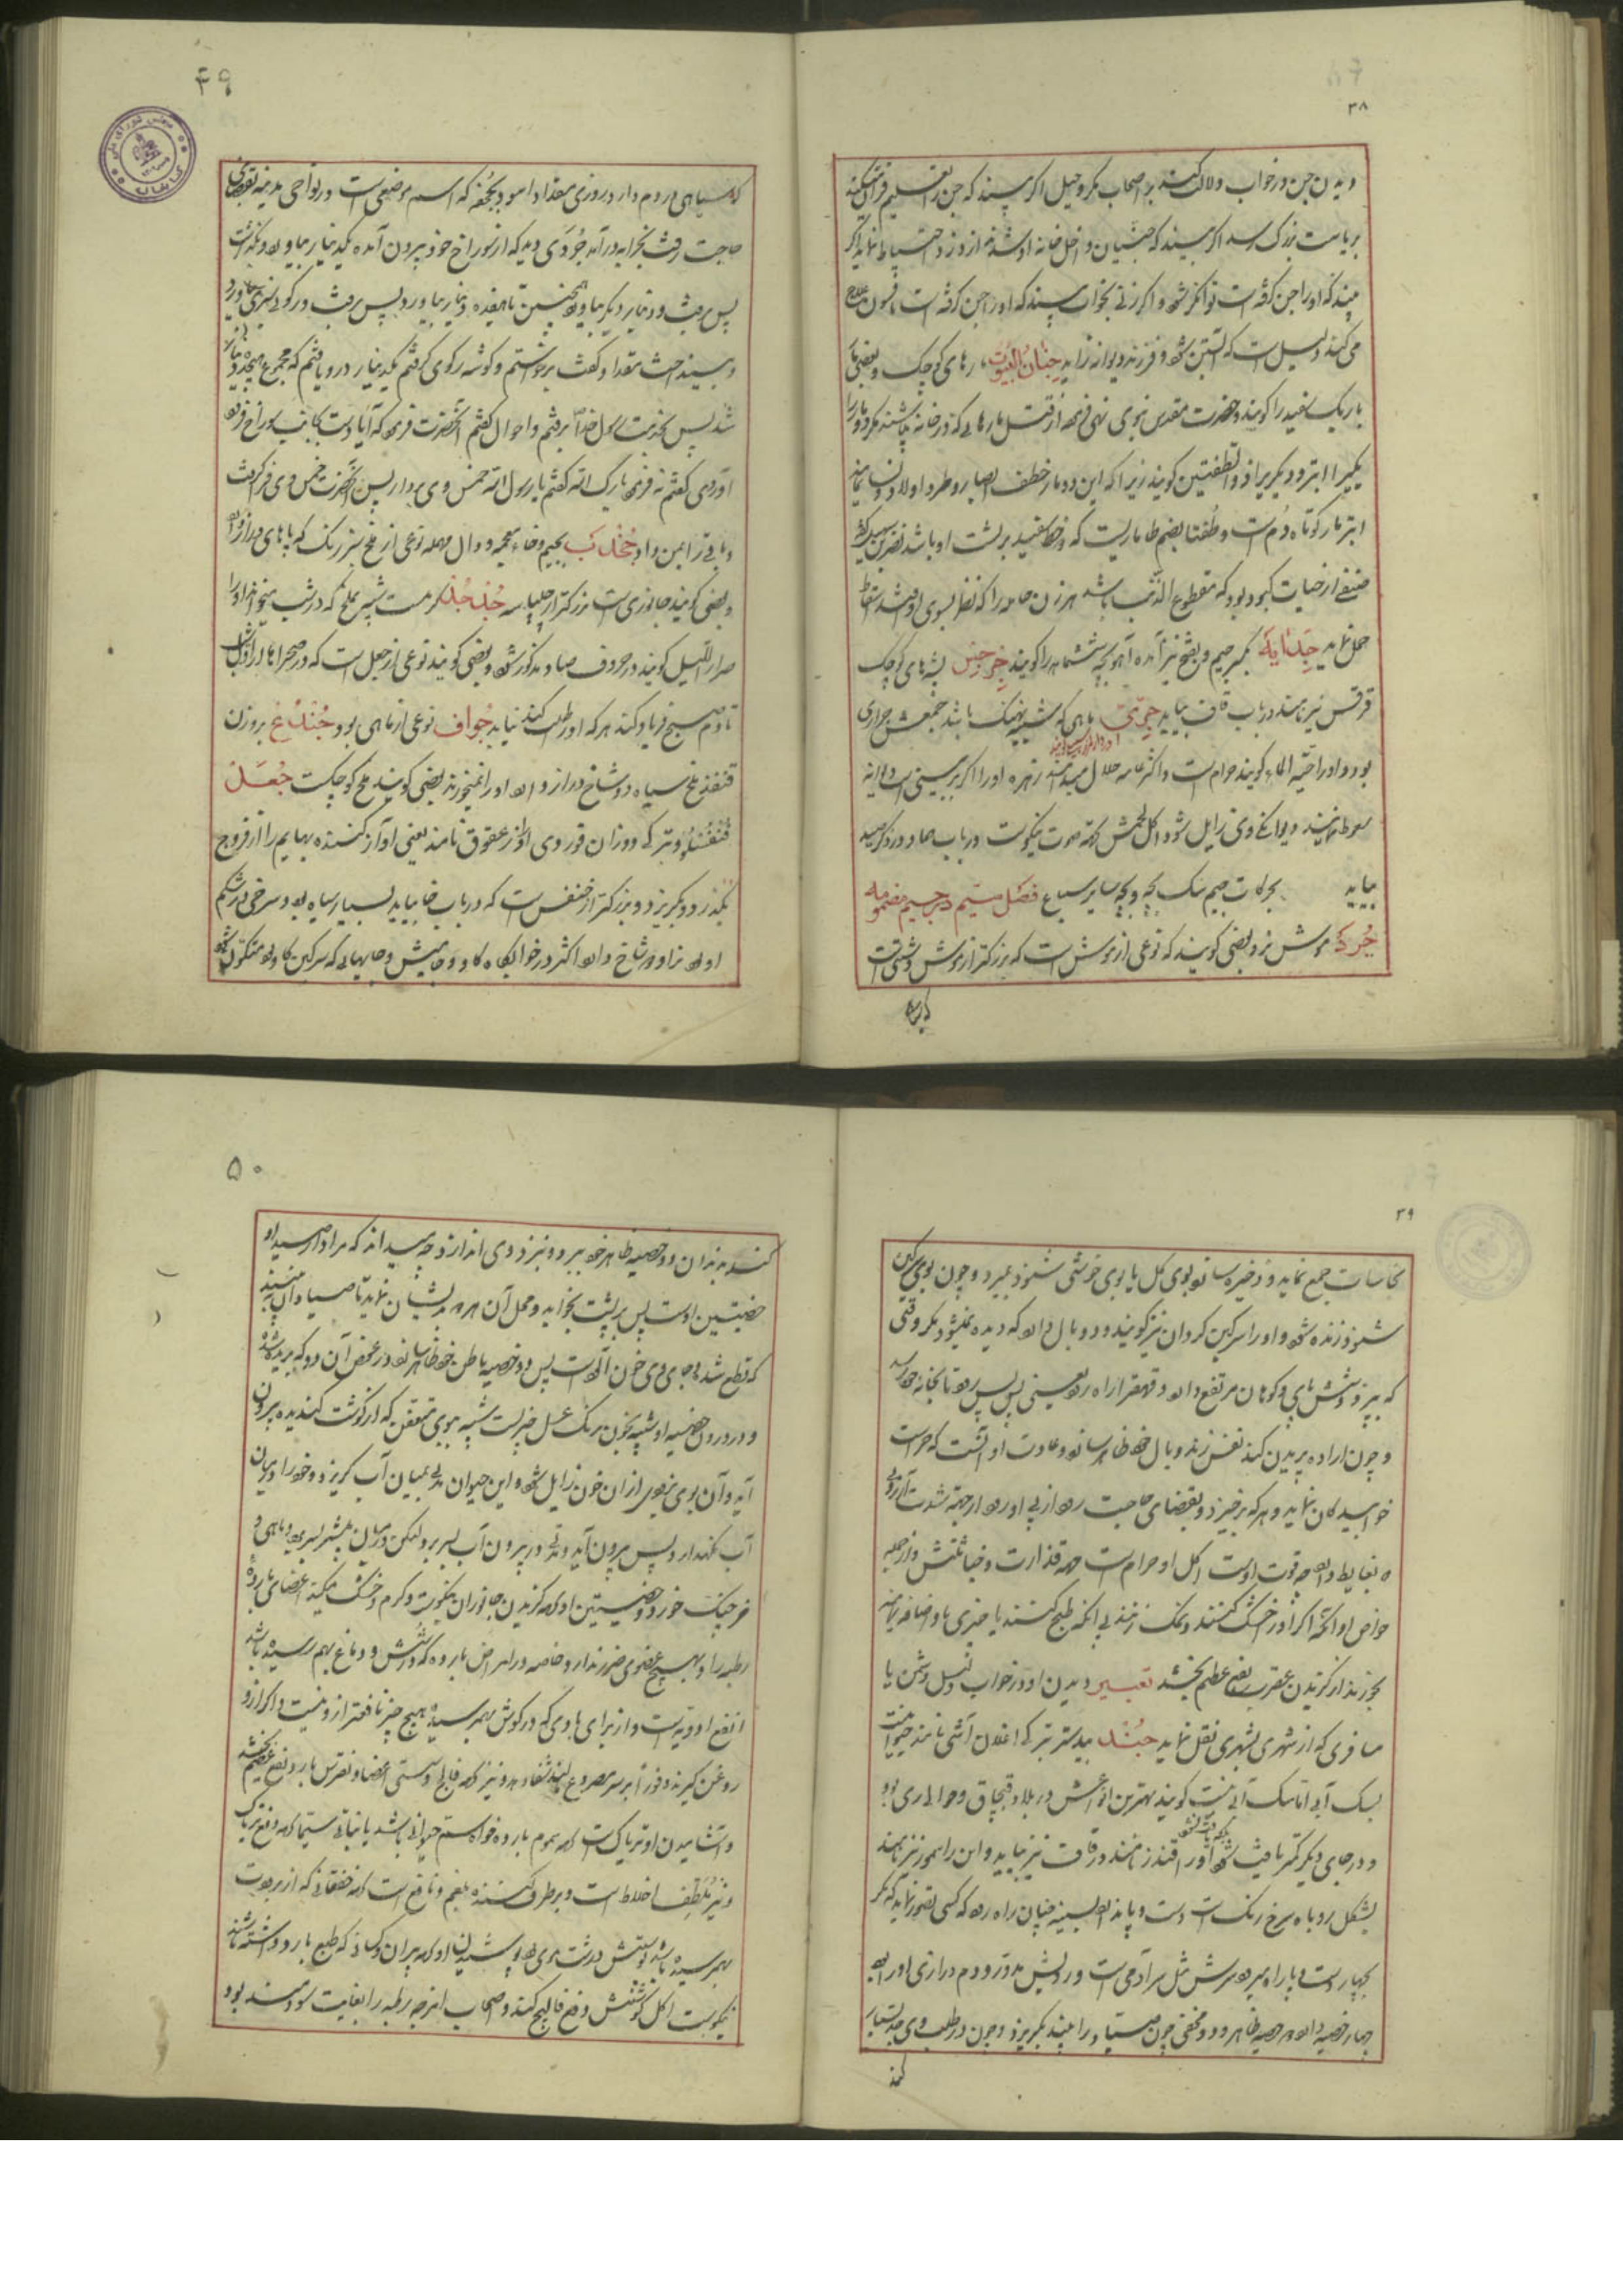 ۳۸
دیدن جن در خواب دلالت کند بر اصحاب مکر و حیل اگر بیند که جن را تعلیم قرآن میکند
بریاست بزرگ رسد اگر بیند که جنیان داخل خانه او شدند از دزد احتیاط نماید اگر
بیند که او را جن گرفته است توانگر شود و اگر زنی بخواب بیند که او را جن گرفته است افسون
می کنند دلیل است که آبستن شود و فرزند دیوانه زاید جنان البیوت مارهای کوچک و بعضی مار
باریک سفید را گویند و حضرت مقدس نبوی نهی فرموده از قتل مارهایی که در خانه باشند مگر دو مار را
یکی را ابتر و دیگری را ذو الطفیتین گویند زیرا که این دو مار خطف ابصار و طرد اولاد نسا نمایند
ابتر مار کوتاه دم است و طفیتا بضم طا ماریست که دو خط سفید بر پشت او باشد
صنفی از حیات کبود بود که مقطوع الذنب باشد هر زن حامله را که نظر بسوی او افتد اسقاط
حمل نماید جدایه بکسر جیم و بفتح نیز آمده آهو بچه ششماهه را گویند جرجس پشه های کوچک
قرقس نیز نامند در باب قاف بیاید جری ماهی که شبیه بنهنگ باشد جمعش جراری
بود و او را حیة الماء گویند حرام است و اکثر عامه حلال میدانند زهره او را اگر بر بینی اسب دیوانه
سعوط نمایند دیوانگی وی زایل شود اکل لحمش جهة صوت نیکوست در باب صاد در ذکر صید
بیاید بحرکات جیم سگ بچه و بچه سایر سباع فصل سیم در جیم مضمومه
جرذ موش نر و بعضی گویند که نوعی از موش است که بزرگتر از موش دشتی است
۴۹
که سیاهی در دم دارد روزی مقداد اسود بجحفه که اسم موضعی است در نواحی مدینه بقضای
حاجت رفت بخرابه درآمد جرذی دید که از سوراخ خود بیرون آمده یکدینار بیاورد و بگذاشت
پس برفت و دینار دیگر بیاورد همچنین تا هفده دینار بیاورد پس برفت و رکوی سرخی بیاورد
مقداد گفت برخواستم و گوشه رکوی گرفتم یکدینار در او یافتم که مجموع هیجده دینار
شد پس بخدمت رسول خدا برفتم و احوال گفتم آنحضرت فرمود که آیا دست بجانب سوراخ فرو
آوردی گفتم نه فرمود بارک الله گفتم یا رسول الله خمس وی بردار پس آنحضرت خمس وی فرا گرفت
و باقی را بمن داد جخدب بجیم و خاء معجمه و دال مهمله نوعی از ملخ سبز رنگ که پاهای دراز دارد
و بعضی گویند جانوری است بزرگتر از چلپاسه جدجد کرمست شبیه بملخ که در شب میخواند او را
صرار اللیل گویند در حروف صاد مذکور شود و بعضی گویند نوعی از جعل است که در صحراها از اول شب
تا دم صبح فریاد کند هر که او را طلب کند نیابد جواف نوعی از ماهی بود جندع بر وزن
قنفذ ملخ سیاه دو شاخ دراز دارد او را نمیخورند بعضی گویند ملخ کوچکست جعل
او را از عقوق نامند یعنی او آزار کننده بهایم را از فروج
بگذرد و بگریزد و بزرگتر از خنفس است که در باب خا بیاید بسیار سیاه بود و سرخی در شکم
او بود نر او دو شاخ دارد اکثر در خوابگاه گاو و گاومیش و جایهایی که سرگین گاو بود متکون شود
۳۹
نجاسات جمع نماید و ذخیره سازد و بوی گل یا بوی خوشی شنود بمیرد و چون بوی سرگین
شنود زنده شود و او را سرگین گردان نیز گویند و دو بال دارد که دیده نمیشود مگر وقتی
که بپرد و شش پای و کوهان مرتفع دارد و قهقرا راه رود یعنی پس پس رود تا بخانه خود رسد
و چون اراده پریدن کند نفس زند و بال خود ظاهر سازد و عادت او آنست که حراست
خوابیدگان نماید و هر که برخیزد و بقضای حاجت رود از پی او رود از جهة شدت آرزویی
که بغایط دارد چه قوت اوست اکل او حرام است جهة قذارت و خباثتش و از جمله
خواص او آنکه اگر او را خشک کنند و نمک زنند بی آنکه طبخ کنند یا چیزی با او اضافه نمایند
بخورند از گزیدن عقرب نفع عظیم بخشد تعبیر دیدن او در خواب دلیل دشمن یا
مسافری که از شهری بشهری نقل نماید جند بیدستر
سگ آبی گویند بهترین انواعش در بلاد قبچاق و حوالی ری بود
و در جای دیگر کمتر یافت شود او را قندز نامند در قاف نیز بیاید و این را سمور نیز نامند
بشکل روباه سرخ رنگ است دست و پا ندارد بسینه چنان راه رود که کسی تصور نماید که مگر
بچهار دست و پا راه میرود سرش مثل سر آدمی است و رویش مدور و دم درازی او را بود
چهار خصیه دارد دو خصیه ظاهر و دو مخفی چون صیاد را بیند بگریزد و چون در طلب وی جد بسیار
کند
۵۰
کند بدندان دو خصیه ظاهر خود ببرد و نزد وی اندازد چه میداند که مراد از صید او
خصیتین اوست پس بر پشت بخوابد و محل آن هر دو بدیشان نماید تا صیادان ببینند
که قطع شده و جای وی خون آلود است پس دو خصیه باطن خود ظاهر سازد در عوض آن دو که بریده شد
و در درون خصیه او شبیه بخون برنگ عسل چیزیست شبیه ببوی متعفن که از گوشت گندیده بیرون
آید و آن بوی بزودی از آن خون زایل شود و این حیوان مدتی بمیان آب گریزد و خود را در میان
آب نگهدارد پس بیرون آید و مدتی در بیرون آب بسر برد لیکن در میان آب بیشتر بسر برد و ماهی و
خرچنگ خورد و خصیتین او جهة گزیدن جانوران نیکوست و گرم و خشک میکند اعضای بارده
رطبه را و بهیچ عضوی ضرر ندارد خاصه در امراض بارده که در شش و دماغ بهم رسیده باشد
انفع ادویه است و از برای بادی که در گوش بهمرسیده هیچ چیز نافعتر از او نیست و اگر از او
روغن گیرند و فورا بر سر مصروع مالند شفا دهد و نیز جهة فالج و سستی اعضا و نقرس بارد نفع عظیم بخشد
و آشامیدن او تریاک است جهة سموم بارده خواه سم حیوانی باشد یا نباتی سیما جهة دفع تریاک
و نیز ملطف اخلاط است و برطرف کننده بلغم و نافع است جهة خفقانی که از برودت
بهمرسیده باشد پوستش درشت موی بود پوشیدن او جهة پیران و کسانی که طبع بارد داشته باشند
نیکوست اکل گوشتش دفع فالج کند و اصحاب امزجه رطبه را بغایت سودمند بود